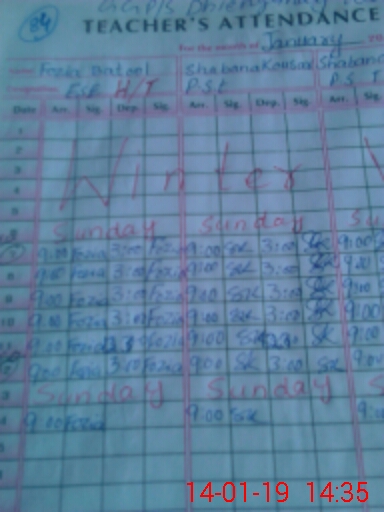 84
TEACHER'S ATTENDANCE
For the month of January
Name Fozia Batool Shabana Kousar Shabana
ESE H/T P.S.T P.S.T
Date Arr. Sig. Dep. Sig. Arr. Sig. Dep. Sig. Arr.
1
2
3
4
5
Winter
Sunday Sunday Su
7 9:00 Fozia 3:00 Fozia 9:00 SK 3:00 SK 9:00
8 9:00 Fozia 3:00 Fozia 9:00 SK 3:00 SK 9:00
9 9:00 Fozia 3:00 Fozia 9:00 SK 3:00 SK 9:00
10 9:00 Fozia 3:00 Fozia 9:00 SK 3:00 SK 9:00
9:00 Fozia Fozia 9:00 SK SK
9:00 Fozia 3:00 Fozia 9:00 SK 3:00 SK 9:00
Sunday Sunday S
9:00 Fozia 9:00 SK 9:0
14-01-19 14:35